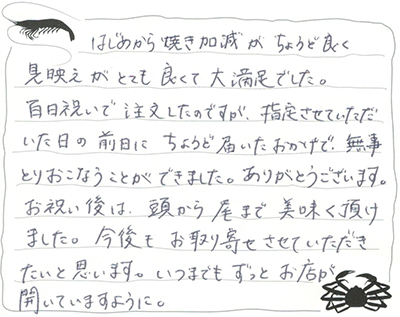 はじめから焼き加減がちょうど良く
見映えがとても良くて大満足でした。
百日祝いで注文したのですが、指定させていただ
いた日の前日にちょうど届いたおかげで、無事
とりおこなうことができました。ありがとうございます。
お祝い後は、頭から尾まで美味く頂け
ました。今後もお取り寄せさせていただき
たいと思います。いつまでもずっとお店が
開いていますように。